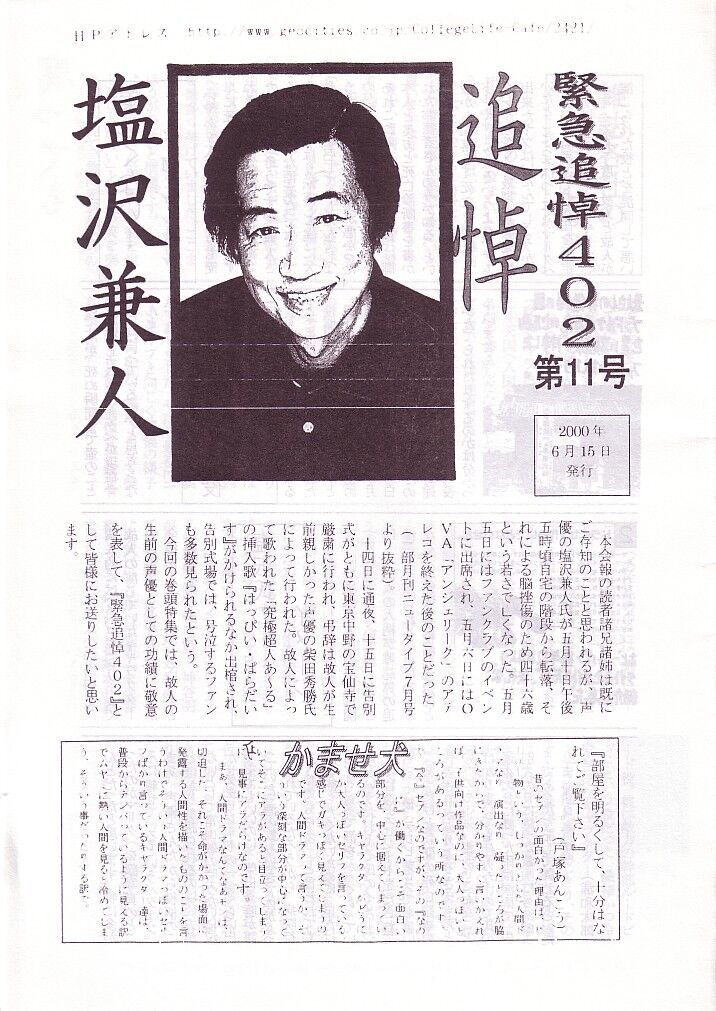 HPアドレス http://www.geocities.co.jp/CollegeLife-Cafe/2421/
緊急追悼402
第11号
2000年
6月15日
発行
追悼
塩沢兼人
本会報の読者諸兄諸姉は既に
ご存知のことと思われるが、声
優の塩沢兼人氏が五月十日午後
五時頃自宅の階段から転落、そ
れによる脳挫傷のため四十六歳
という若さで亡くなった。五月
五日にはファンクラブのイベン
トに出席され、五月六日にはO
VA「アンジェリーク」のアテ
レコを終えた後のことだった
(一部月刊ニュータイプ7月号
より抜粋)
十四日に通夜、十五日に告別
式がともに東京中野の宝仙寺で
厳粛に行われ、弔辞は故人が生
前親しかった声優の柴田秀勝氏
によって行われた。故人によっ
て歌われた「究極超人あ〜る」
の挿入歌『はっぴい・ぱらだい
す』がかけられるなか出棺され、
告別式場では、号泣するファン
も多数見られたという。
今回の巻頭特集では、故人の
生前の声優としての功績に敬意
を表して、『緊急追悼402』と
して皆様にお送りしたいと思い
ます。
かませ犬
『部屋を明るくして、十分はな
れてご覧下さい』
(戸塚あんこう)
昔のセブンの面白かった理由は、
ば、子供向け作品なのに、大人っぽい
ころがあるっていう所なのです。
部分を、中心に据えてしまってい
るのです。キャラクターが
か大人っぽいセリフを言っている
感じでガキっぽく見えてしまうの
です。人間ドラマって言うか、そ
ういう深刻な部分が中心になって
いてそこにアラがあると目立ってしまう
見事にアラだらけなのです。
まあ、人間ドラマなんてなあモノは、
切迫した、それこそ命がかかった場面に
発露する人間性を描いたもののことを言
フばかり言っているキャラクター達は、
普段からテンパっているように見える訳
でムヤミに熱い人間を見ると冷めてしま